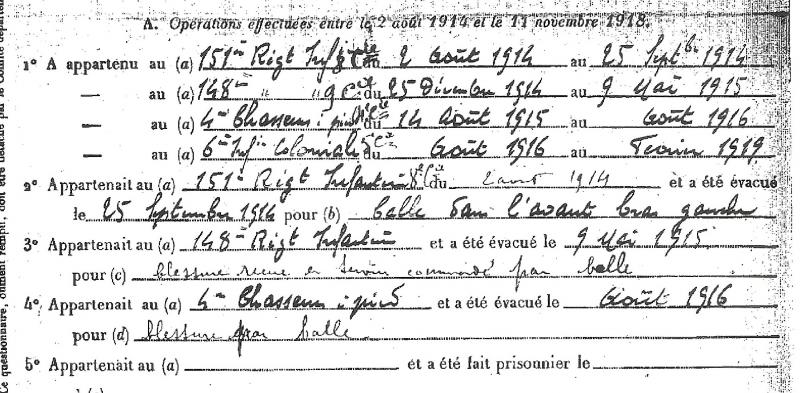 A. Opérations effectuées entre le 2 août 1914 et le 11 novembre 1918.
1° A appartenu au (a) 151me Régt Infie du 2 Août 1914 au 25 Septbe 1914
— au (a) 148me " 9e Cie du 25 Décembre 1914 au 9 Mai 1915
— au (a) 4me Chasseurs à pied du 14 Août 1915 au Août 1916
— au (a) 6me Infie Coloniale du Août 1916 au Fevrier 1919
2° Appartenait au (a) 151me Régt Infanterie du 2 aout 1914 et a été évacué
le 25 Septembre 1914 pour (b) balle dans l'avant bras gauche
3° Appartenait au (a) 148me Régt Infanterie et a été évacué le 9 Mai 1915
pour (c) blessure recue en service commandé par balle
4° Appartenait au (a) 4me Chasseurs à pied et a été évacué le Août 1916
pour (d) blessure par balle
5° Appartenait au (a) et a été fait prisonnier le
Ce questionnaire, dûment rempli, doit être
par le Comité